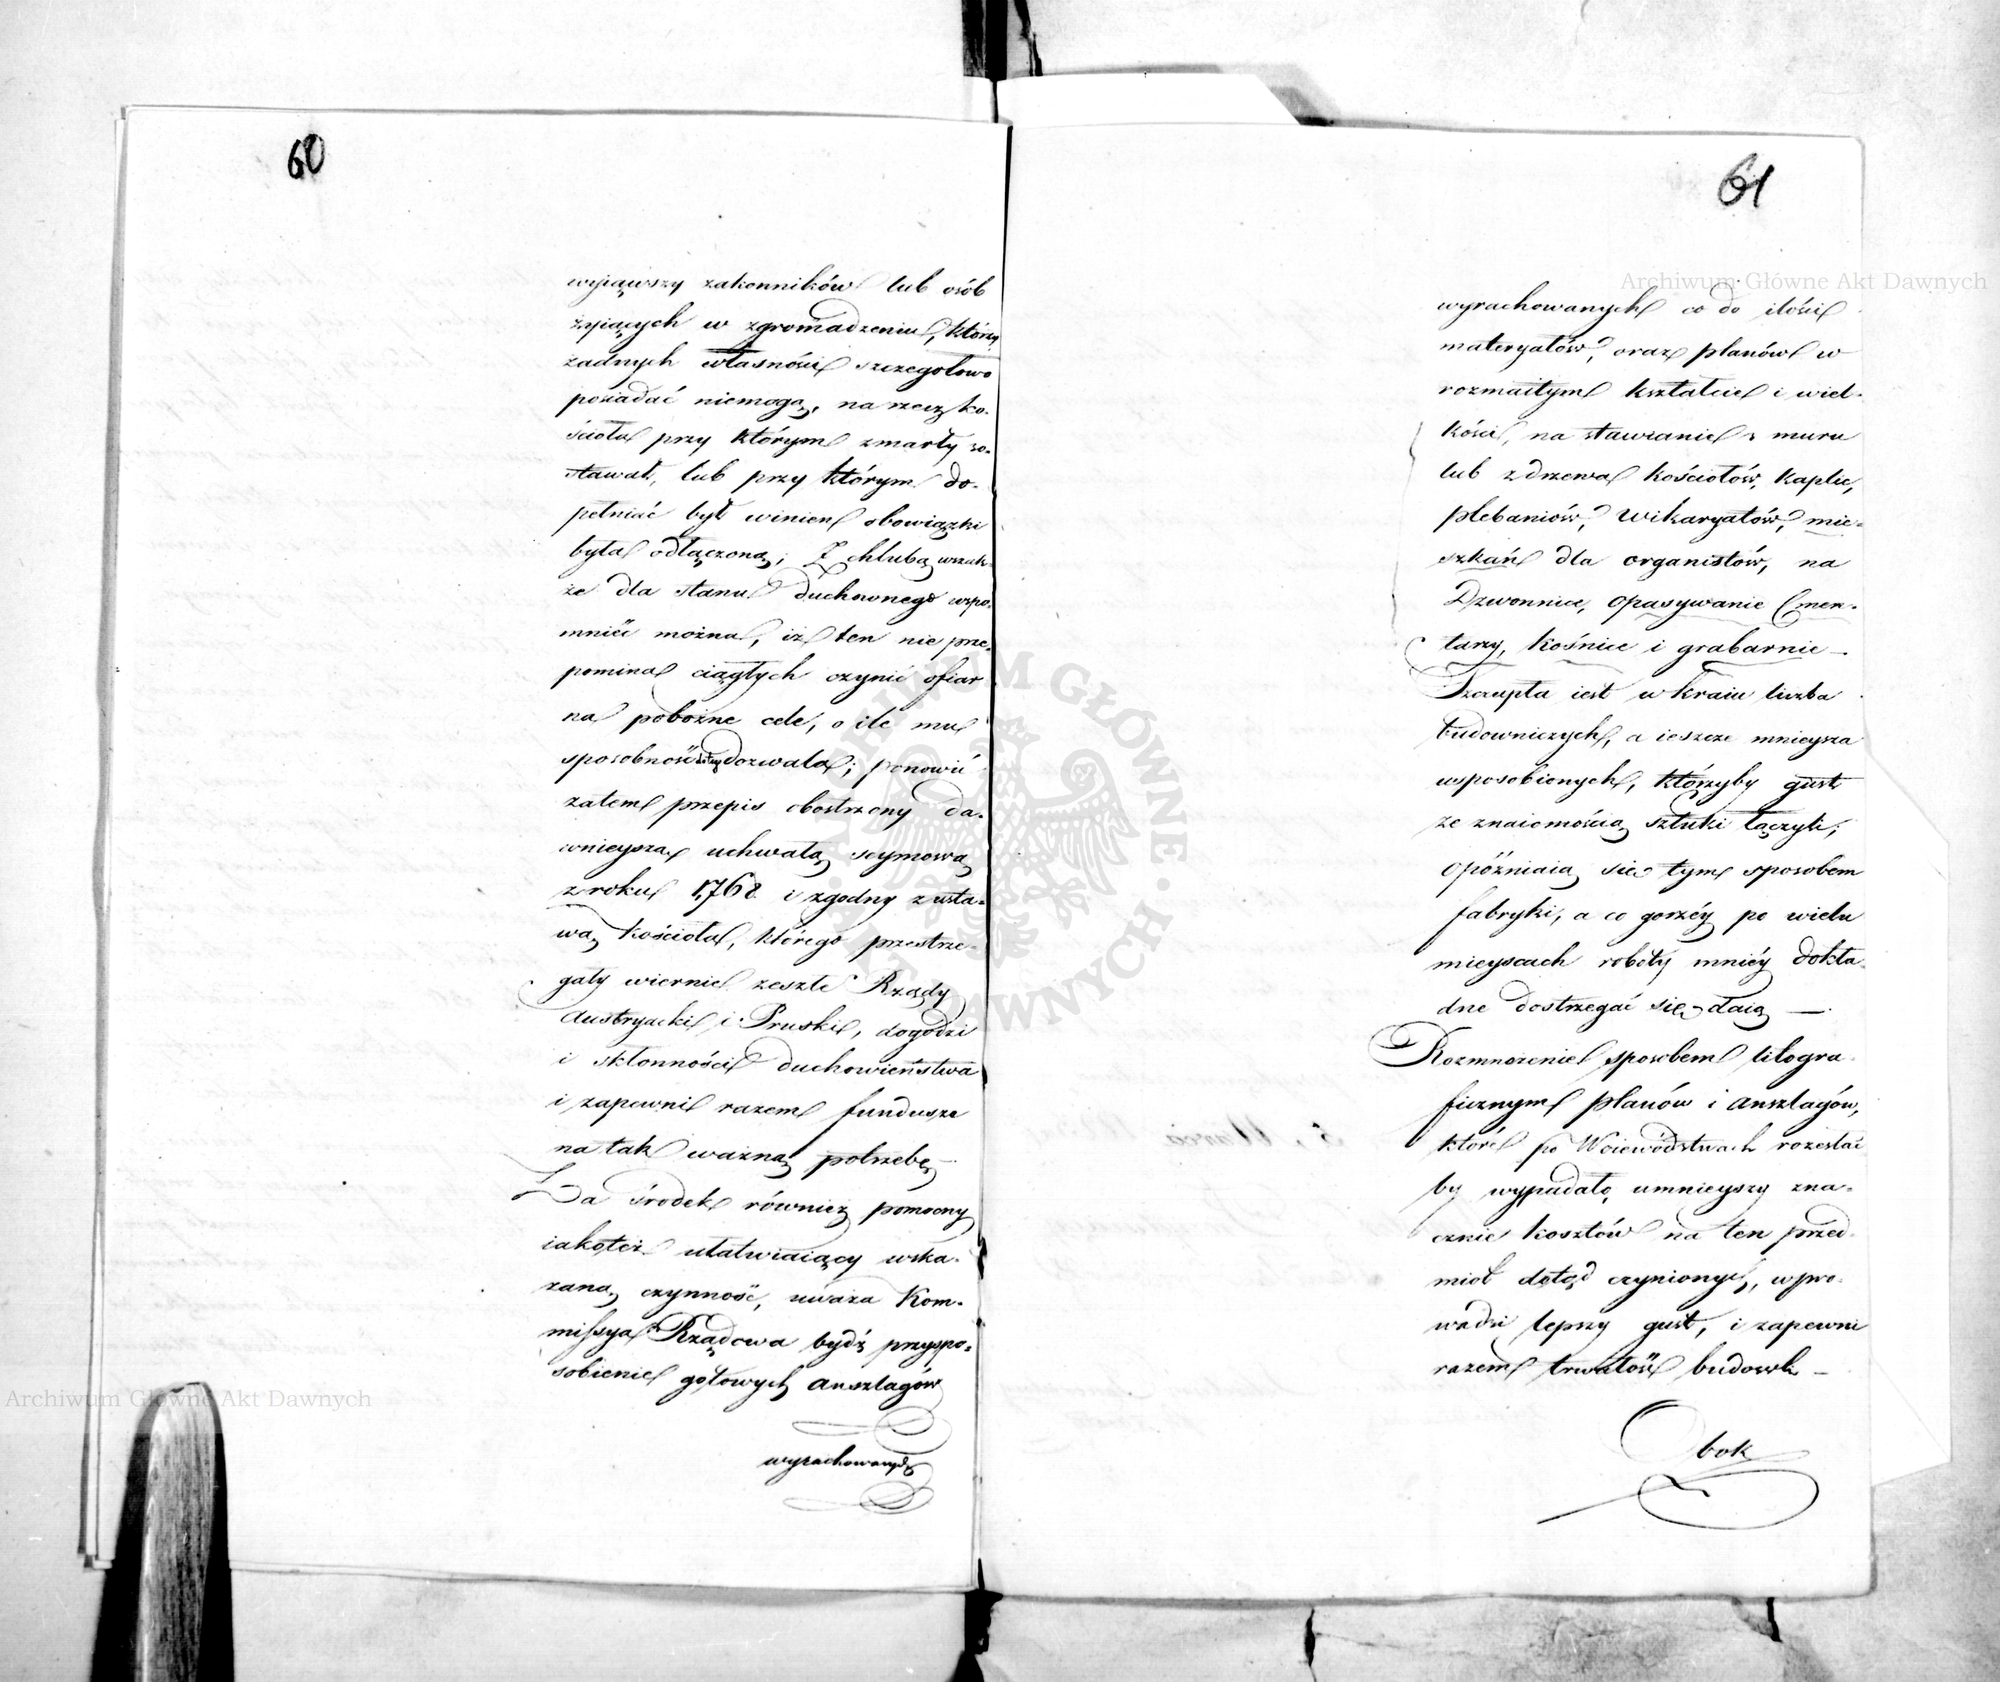 60
wyiąwszy zakonników lub osób
żyiących w zgromadzeniu, którzy
żadnych własności szczegółowo
posiadać niemogą, na rzecz ko-
ścioła przy którym zmarły zo-
stawał, lub przy którym do-
pełniać był winien obowiązki
była odłączoną; Z chlubą wszak-
że dla stanu duchownego wspo-
mnieć można, iż ten nie prze-
pomina ciągłych czynić ofiar
na pobożne cele, o ile mu
sposobność dozwala; ponowić
zatem przepis obostrzony da-
wnieyszą uchwałą seymową
z roku 1768 i zgodny z usta-
wą kościoła, którego przestrze-
gały wiernie zeszłe Rządy
Austryacki i Pruski, dogodzi
i skłonności duchowieństwa
i zapewni razem fundusze
na tak ważną potrzebę —
Za środek również pomocny
iakoteż ułatwiaiący wska-
zaną czynność, uważa Kom-
missya Rządowa bydź przyspo-
sobienie gotowych anszlagów
wyrachowanych
61
wyrachowanych co do ilości
materyałów, oraz planów w
rozmaitym kształcie i wiel-
kości, na stawianie z muru
lub z drzewa kościołów, kaplic,
plebaniów, Wikaryatów, mie-
szkań dla organistów, na
Dzwonnice, opasywanie Cmen-
tarzy, kośnice i grabarnie —
Szczupła iest w kraiu liczba
budowniczych, a ieszcze mnieysza
usposobionych, którzyby gust
ze znaiomością sztuki łączyli;
opóźniaią się tym sposobem
fabryki, a co gorzéy po wielu
mieyscach roboty mniéy dokła-
dne dostrzegać się daią —
Rozmnożenie sposobem litogra-
ficznym planów i anszlagów,
które po Woiewództwach rozesłać
by wypadało, umnieyszy zna-
cznie kosztów na ten przed-
miot dotąd czynionych, wpro-
wadzi lepszy gust, i zapewni
razem trwałość budowli —
Obok
Archiwum Główne Akt Dawnych
Archiwum Główne Akt Dawnych
ARCHIWUM GŁÓWNE AKT DAWNYCH